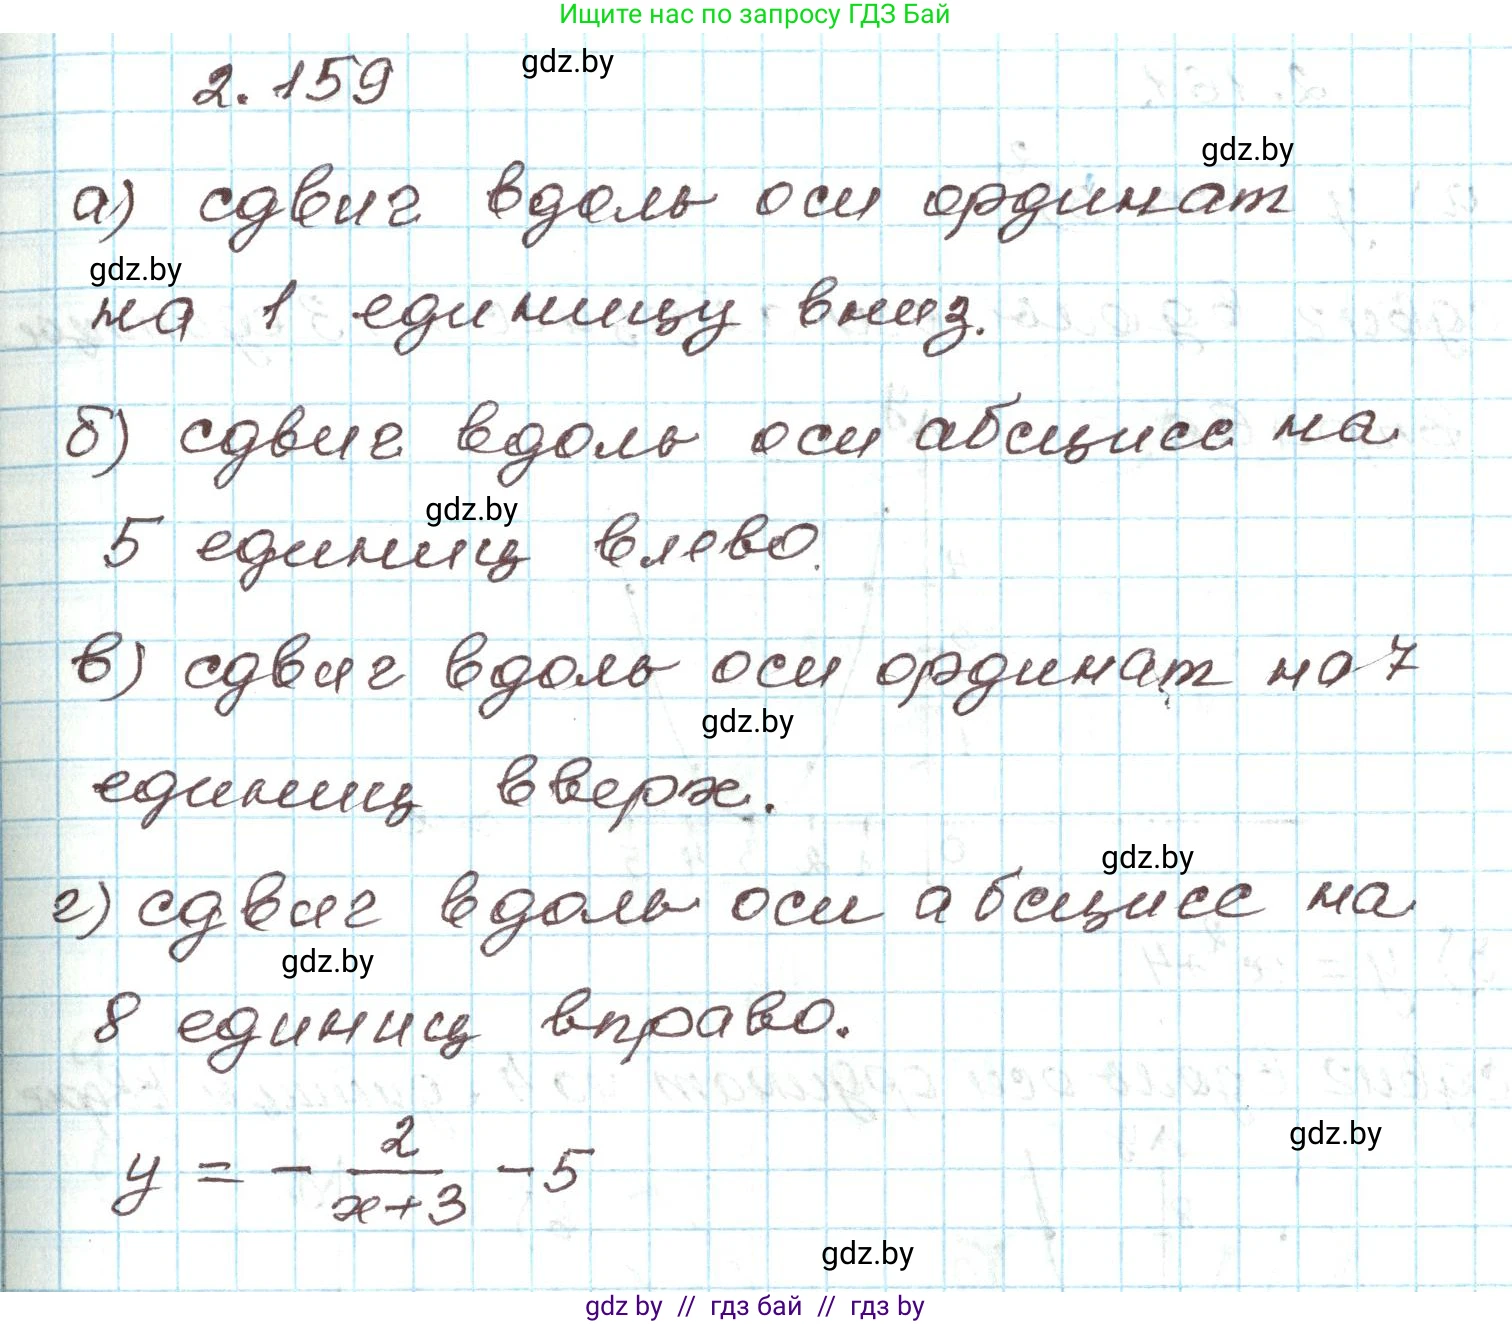 Ищите нас по запросу ГДЗ Бай
2.159
gdz.by
gdz.by
а) сдвиг вдоль оси ординат
gdz.by
на 1 единицу вниз.
б) сдвиг вдоль оси абсцисс на
gdz.by
5 единиц влево.
в) сдвиг вдоль оси ординат на 7
gdz.by
единиц вверх.
gdz.by
г) сдвиг вдоль оси абсцисс на
gdz.by
8 единиц вправо.
y = - 2/(x+3) - 5
gdz.by
gdz.by
gdz by // гдз бай // гдз by